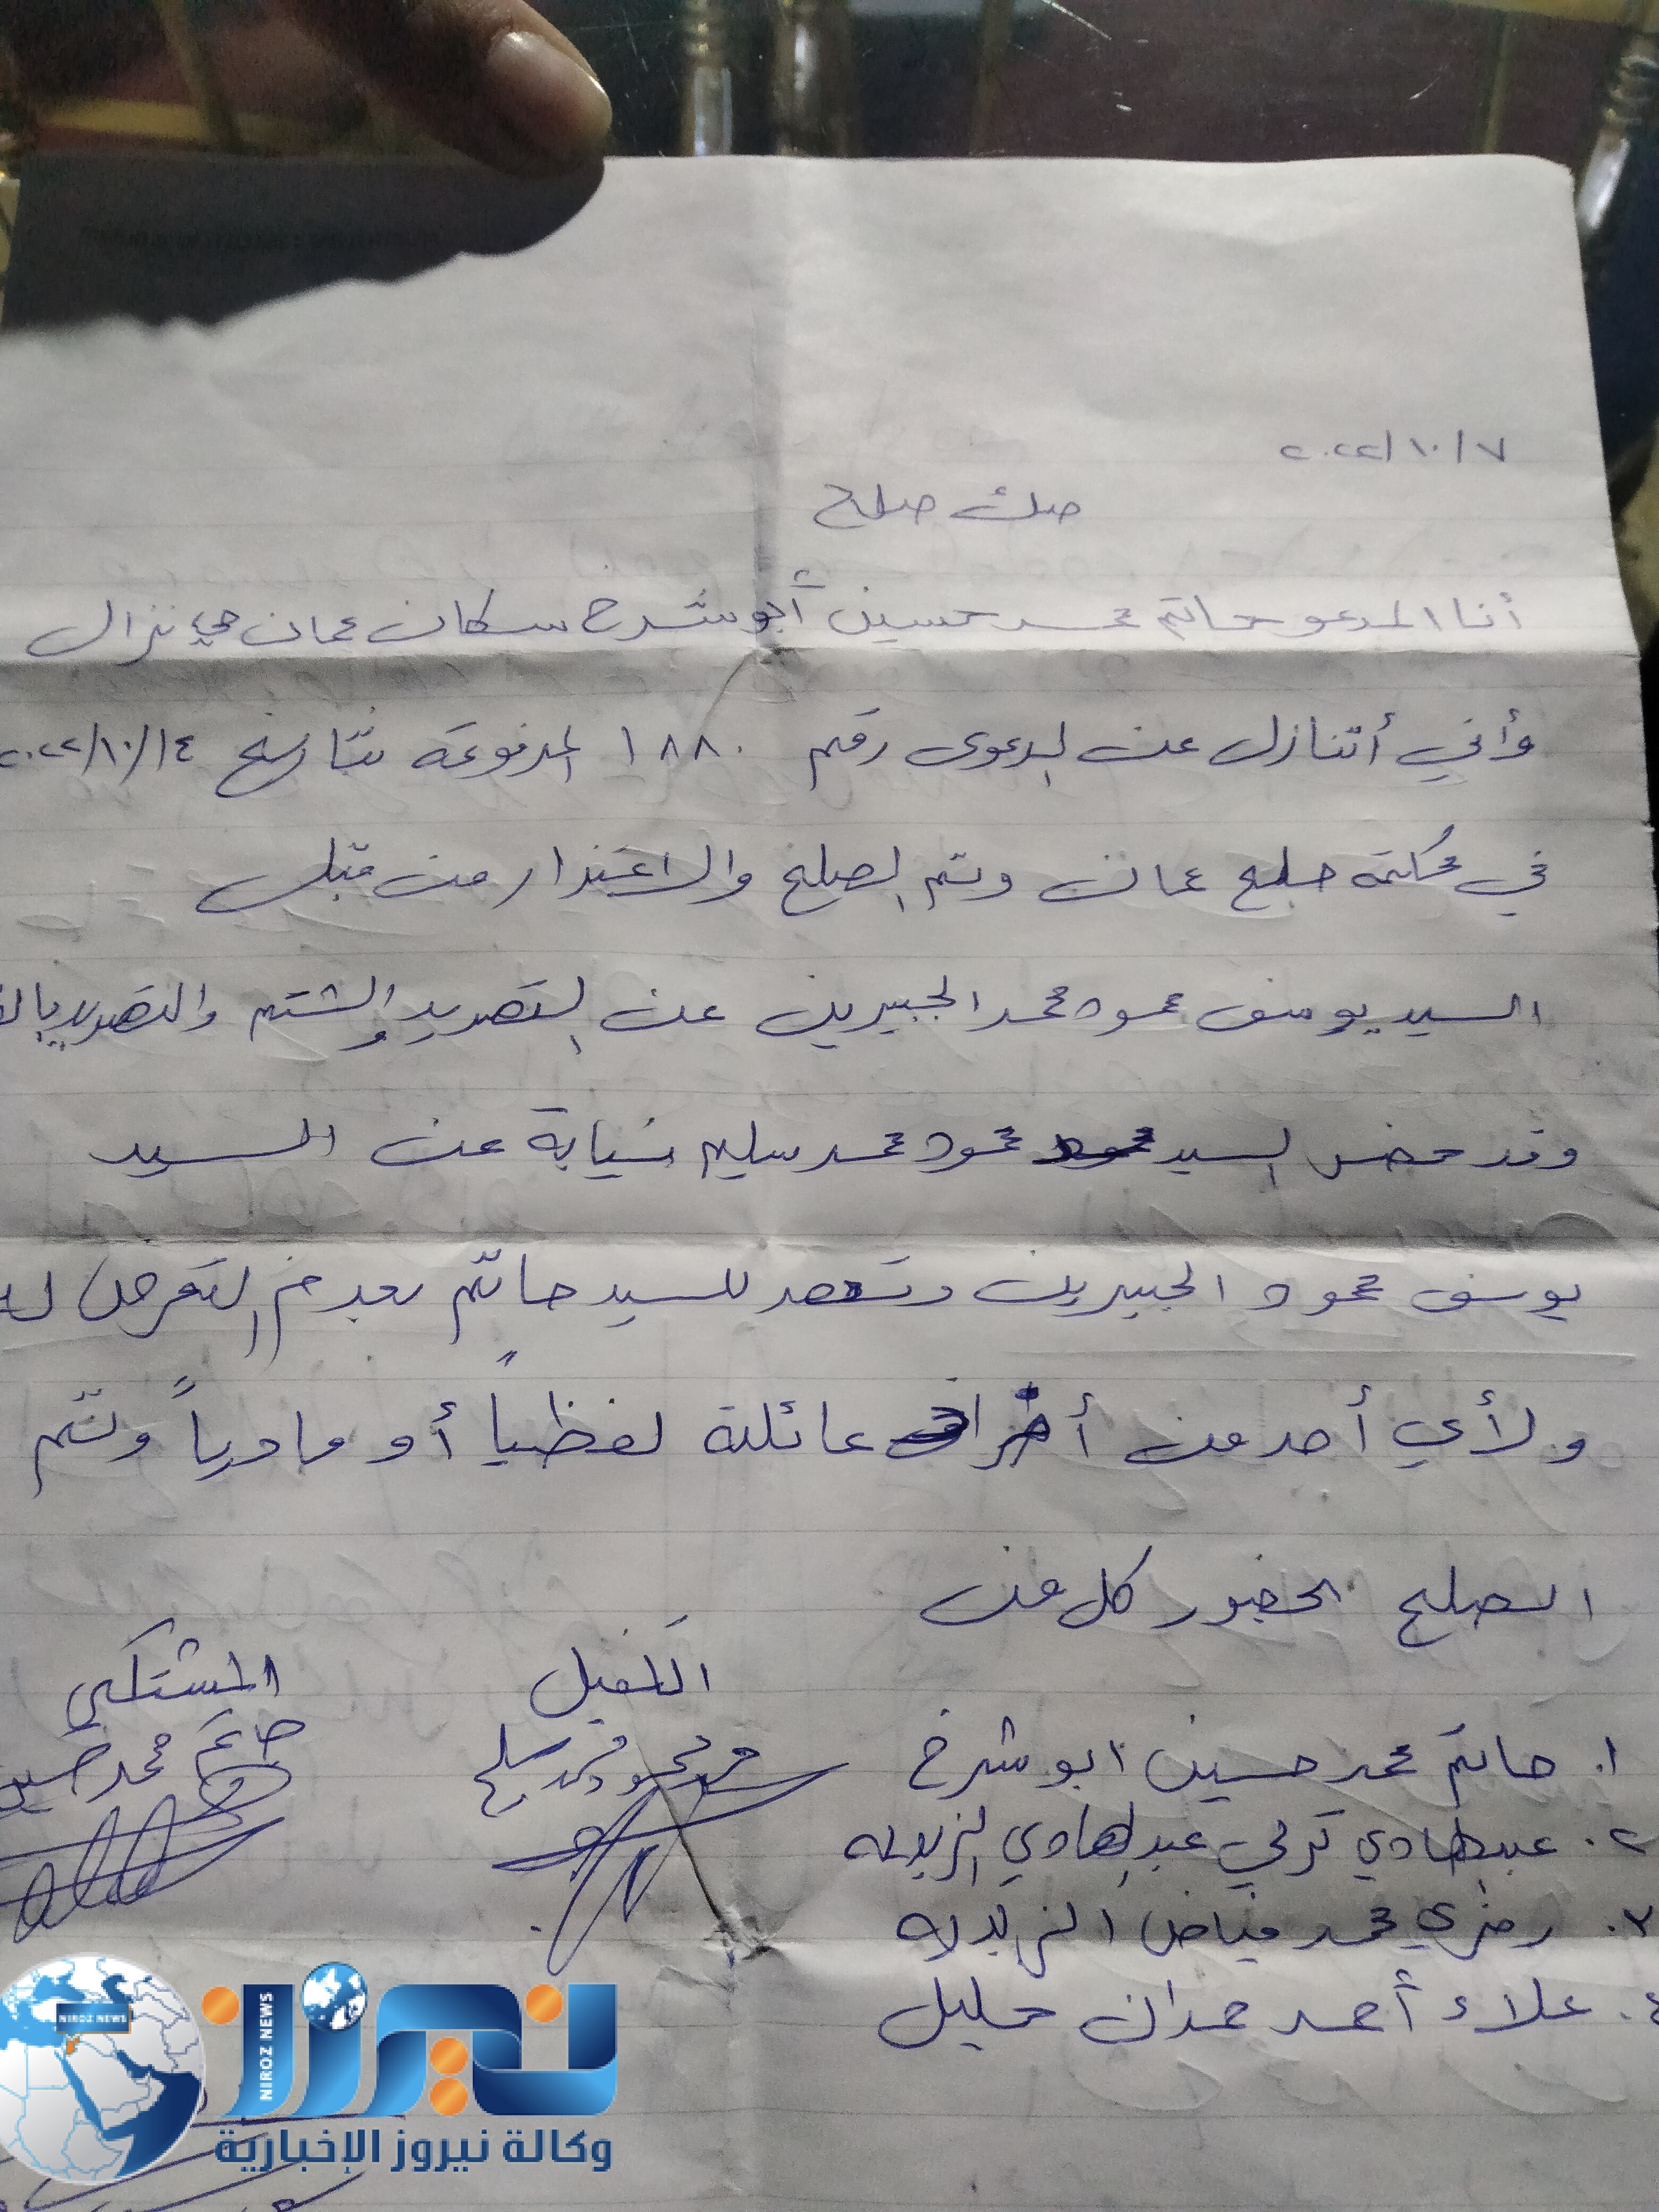 ٢٠٢٢/١٠/٧
صك صلح
أنا المدعو حاتم محمد حسين أبو شرخ سكان عمان حي نزال
وأني أتنازل عن الدعوى رقم ١٨٨٠ المرفوعة بتاريخ ٢٠٢٢/١٠/١٤
في محكمة صلح عمان وتم الصلح والاعتذار من قبل
السيد يوسف محمود محمد الجبيرين عن التهديد والشتم والتهديد
وقد حضر السيد محمود محمد سليم نيابة عن السيد
يوسف محمود الجبيرين وتعهد للسيد حاتم بعدم التعرض له
ولأي أحد من أفراد عائلته لفظياً أو مادياً وتم
الصلح بحضور كل من
الكفيل
المشتكي
حاتم محمد حسين
١. حاتم محمد حسين ابو شرخ
٢. عبدالهادي تركي عبدالهادي
٣. رمزي محمد فياض
٤. علاء أحمد حمدان خليل
NIROZ NEWS
NIROZ NEWS
نيروز
وكالة نيروز الإخبارية